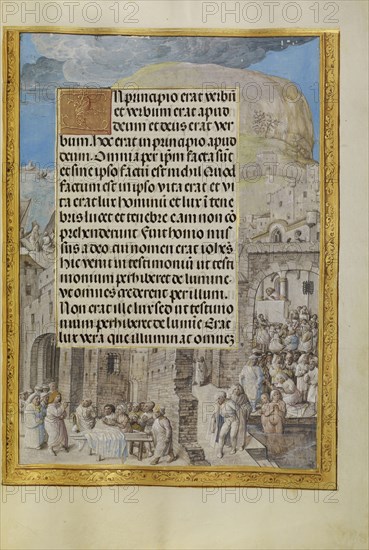 In principio erat verbū
et verbum erat apud
deum et deus erat ver
bum. hoc erat in principio apud
deum. Omnia per ipm̄ facta sūt
et sine ipso factū est nichil Quod
factum est in ipso vita erat et vi
ta erat lux hominū et lux ī tene
bris lucet et tenebre eam non cō
prehenderunt Fuit homo mis
sus a deo. cui nomen erat iohēs
hic venit in testimoniū ut testi
monium perhiberet de lumine.
vt omnes crederent per illum.
Non erat ille lux sed ut testimo
nium perhiberet de lumīe. Erat
lux vera que illuminat omnez
PHOTO12 PHOTO12 PHOTO12